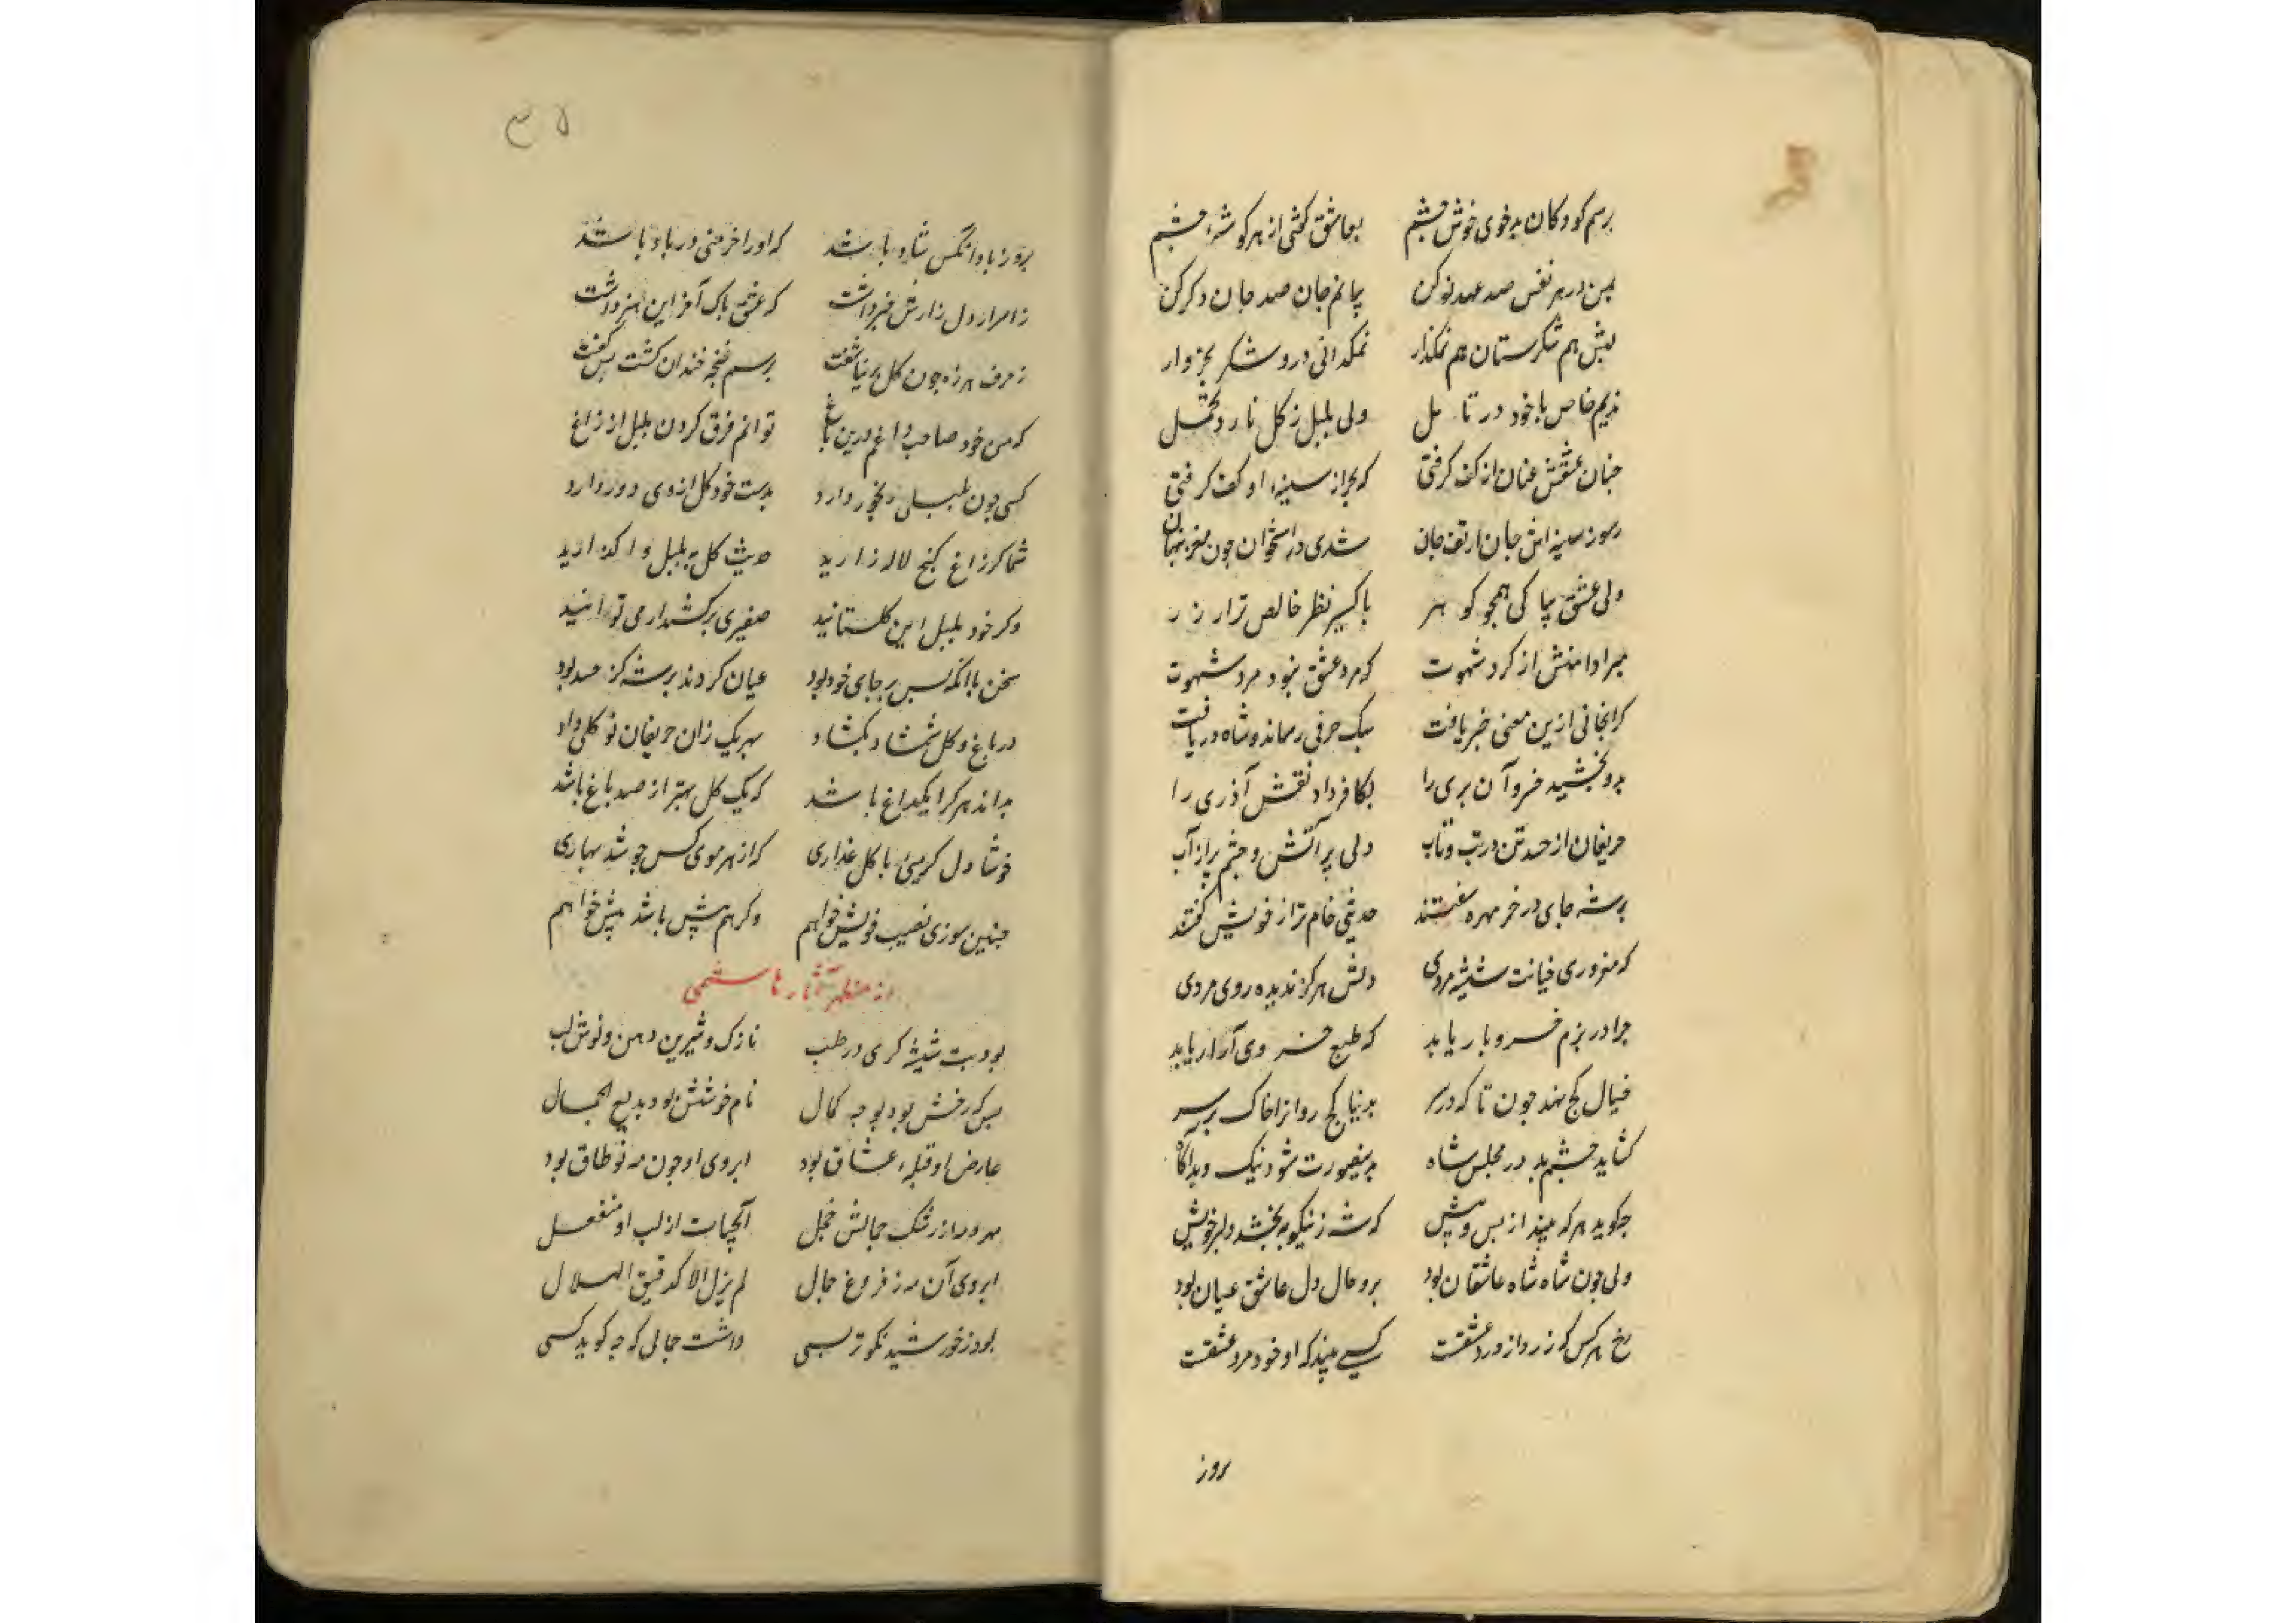 برسم کودکان بدخوی خوش چشم بعاشق کشی از هر کوشه چشم
ببین در هر نفس صد عهد نو کن بجانم جان صد جان در کرو کن
لبش هم شکرستان هم نمکزار نمکدانی درو شکر بخروار
ندیم خاص با خود در تامل ولی بلبل ز کل نارد تحمل
جنان عشقش عنان از کف کرفتی که بحر از سینه او کف کرفتی
ز سوز سینه اش جان از تف جان شدی در استخوان جون مغز پنهان
ولی عشق بپاکی همجو کوهر باکسیر نظر خالص تر از زر
مبرا دامنش از کرد شهوت که مرد عشق نبود مرد شهوت
کرانجانی ازین معنی خبر یافت بیک حرفی رساند و شاه دریافت
بدو بخشید خسرو آن بری را بکافر داد نقش آذری را
حریفان از حسد تن در تب و تاب دلی پر آتش و چشم پر از آب
برشته جای در خر مهره سفتند حدیثی خام تر از خویش کفتند
که مزوری خیانت شیشه مردی دلش هرکز ندیده روی مردی
چرا در بزم خسرو بار یابد که طبع خسروی آزار یابد
خیال کج نهد جون تا که در سر بدنیا کج روانرا خاک بر سر
کشاید چشم بد در مجلس شاه بدینصورت شود نیک و بد آکاه
جکوید هر که بیند از بس و پیش که شه ز نیکو به بخشد دلبر خویش
ولی جون شاه شاه عاشقان بود برو حال دل عاشق عیان بود
رخ هر کس که زرد از درد عشقست کسی بیند که او خود مرد عشقست
روز
۳۵
بروز باد آنکس شاد باشد که او را خرمنی در باد باشد
ز اسرار دل زارش خبر داشت که عشق پاک آخر این هنر داشت
ز حرف هرزه جون کل بر نیاشفت برسم غنجه خندان کشت بس کفت
که من خود صاحب داغم درین باغ توانم فرق کردن بلبل از زاغ
کسی جون بلبلی رنجور دارد بدست خود کل از وی دور دارد
شما کر زاغ کنج لاله زارید حدیث کل به بلبل واکذارید
وکر خود بلبل این کلستانید صفیری برکشید ار می توانید
سخن با آنکه بس بر جای خود بود عیان کردند بر شه کز حسد بود
در باغ و کل شمشاد بکشاد بهر یک زان حریفان نو کلی داد
بداند هر کرا یکداغ باشد که یک کل بهتر از صد باغ باشد
خوشا دل کرمیی با کل عذاری که از هر موی کس جوشد بهاری
جنین سوزی نصیب خویش خواهم وکر هم بیش باشد بیش خواهم
از مظهر آثار هاشمی
بود بت شیشه کری در حلب نازک و شیرین دهن و نوش لب
بس که رخش بود بوجه کمال نام خوشش بود بدیع الجمال
عارض او قبله عشاق بود ابروی او جون مه نو طاق بود
مهر و مه از رشک جمالش خجل آبحیات از لب او منفعل
ابروی آن مه ز فروغ جمال لم یزل الا کدقیق الهلال
بود ز خورشید نکوتر بسی داشت جمالی که چه کوید کسی